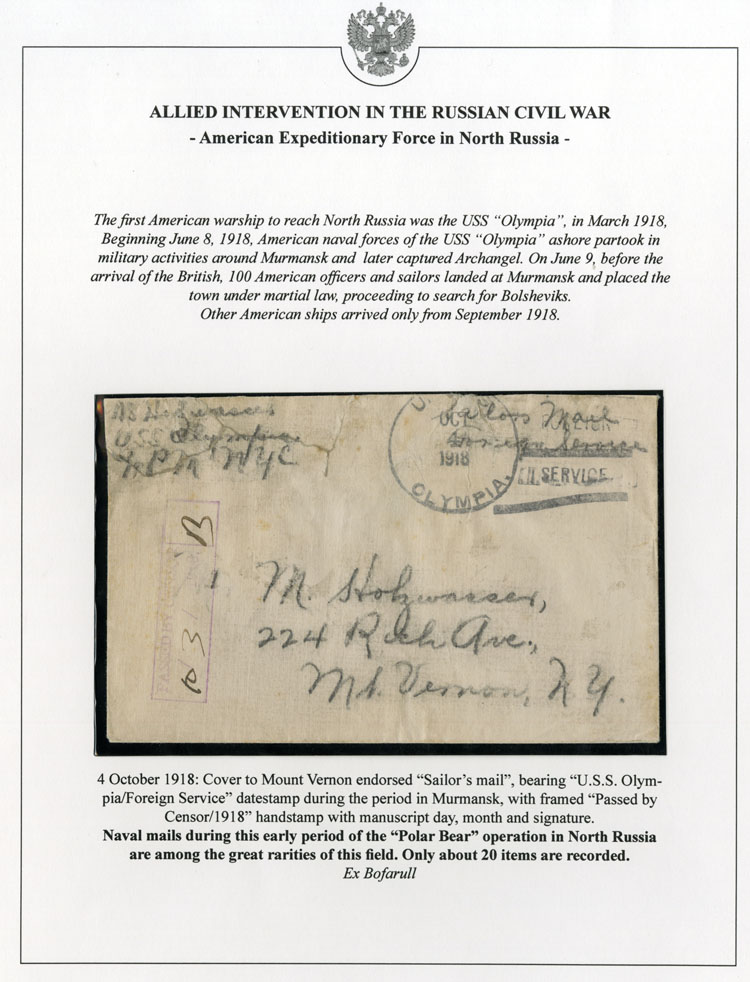 ALLIED INTERVENTION IN THE RUSSIAN CIVIL WAR
- American Expeditionary Force in North Russia -
The first American warship to reach North Russia was the USS “Olympia”, in March 1918,
Beginning June 8, 1918, American naval forces of the USS “Olympia” ashore partook in
military activities around Murmansk and later captured Archangel. On June 9, before the
arrival of the British, 100 American officers and sailors landed at Murmansk and placed the
town under martial law, proceeding to search for Bolsheviks.
Other American ships arrived only from September 1918.
Holzwasser
USS Olympia
PM NYC
Sailors Mail
Foreign Service
OCT
1918
OLYMPIA.
SERVICE
PASSED BY
M. Holzwasser,
224 Rich Ave.,
Mt. Vernon, N.Y.
4 October 1918: Cover to Mount Vernon endorsed “Sailor’s mail”, bearing “U.S.S. Olym-
pia/Foreign Service” datestamp during the period in Murmansk, with framed “Passed by
Censor/1918” handstamp with manuscript day, month and signature.
Naval mails during this early period of the “Polar Bear” operation in North Russia
are among the great rarities of this field. Only about 20 items are recorded.
Ex Bofarull